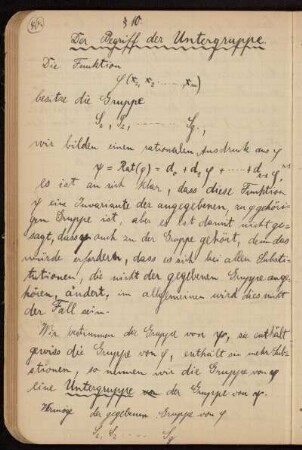 § 10.
Der Begriff der Untergruppe
Die Funktion
φ(x₁, x₂ ...... xₙ)
besitze die Gruppe
S₁, S₂, ...... S
wir bilden einen rationalen Ausdruck aus φ
ψ = Rat(φ) = d₀ + d₁ φ + ..... + d
so ist an sich klar, dass diese Funktion
ψ eine Invariante der angegebenen, zu φ gehöri-
gen Gruppe ist, aber es ist damit nicht ge-
sagt, dass ψ auch zu der Gruppe gehört, denn das
würde erfordern, dass es sich bei allen Substi-
tutionen, die nicht der gegebenen Gruppe ange-
hören, ändert, im allgemeinen wird dies nicht
der Fall sein.
Wir bestimmen die Gruppe von ψ, sie enthält
gewiss die Gruppe von φ, enthält sie mehr Substi-
tutionen, so nennen wir die Gruppe von φ
eine Untergruppe der Gruppe von ψ.
Vermöge der gegebenen Gruppe von φ
S₁, S₂ ...... S